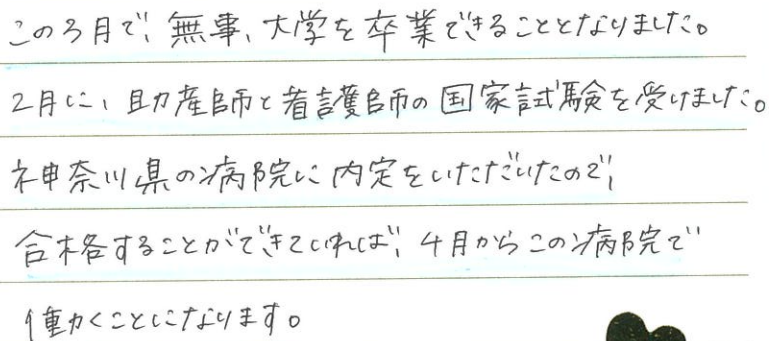 この3月で、無事、大学を卒業できることとなりました。
2月に、助産師と看護師の国家試験を受けました。
神奈川県の病院に内定をいただいたので、
合格することができていれば、4月からこの病院で
働くことになります。